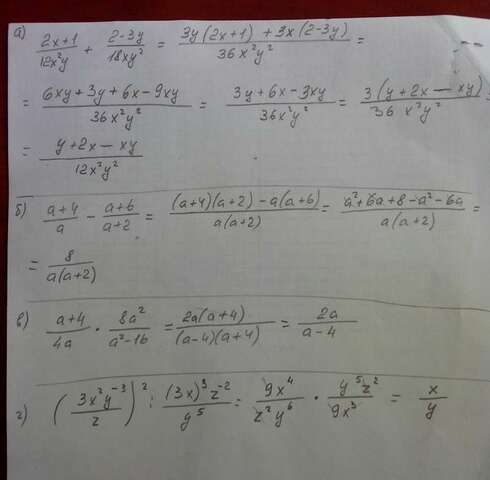 а) (2x+1)/(12x²y) + (2-3y)/(18xy²) = (3y(2x+1) + 3x(2-3y))/(36x²y²) =
= (6xy+3y+6x-9xy)/(36x²y²) = (3y+6x-3xy)/(36x²y²) = 3(y+2x-xy)/(36x²y²) =
= (y+2x-xy)/(12x²y²)
б) (a+4)/a - (a+6)/(a+2) = ((a+4)(a+2) - a(a+6))/(a(a+2)) = (a²+6a+8-a²-6a)/(a(a+2)) =
= 8/(a(a+2))
в) (a+4)/(4a) · (8a²)/(a²-16) = (2a(a+4))/((a-4)(a+4)) = (2a)/(a-4)
г) ((3x²y⁻³)/z)² : ((3x)³z⁻²)/(y⁵) = (9x⁴)/(z²y⁶) · (y⁵z²)/(9x³) = x/y